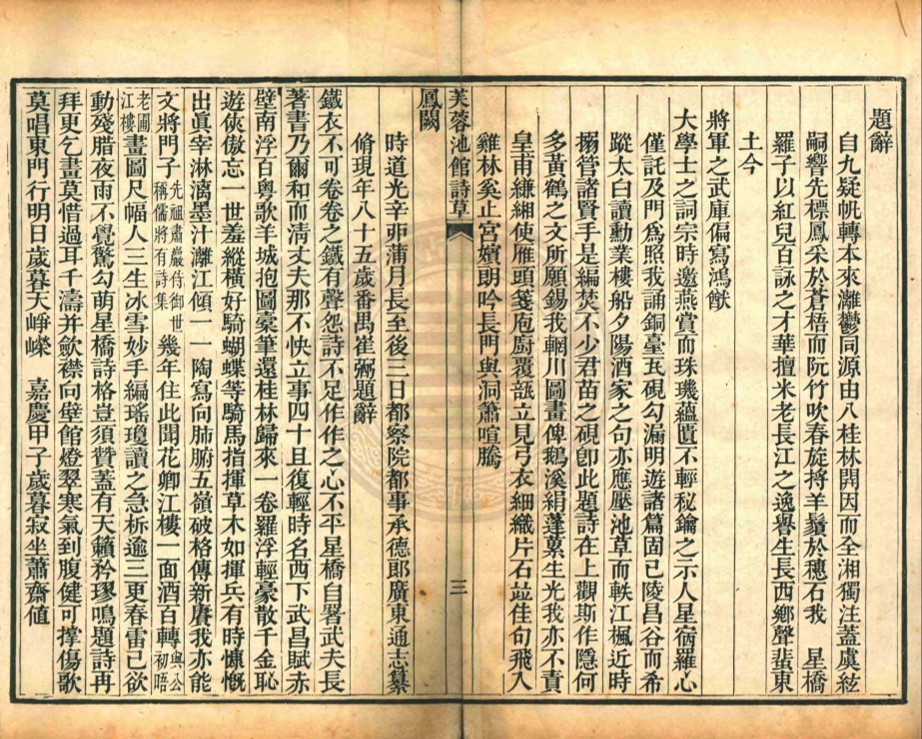 題辭
自九疑帆轉本來灕鬱同源由八桂林開因而全湘獨注蓋虞絃
嗣響先標鳳采於蒼梧而阮竹吹春旋捋羊鬚於穗石我　星橋
羅子以紅兒百詠之才華擅米老長江之逸譽生長西鄉聲蜚東
土今
將軍之武庫偏寫鴻猷
大學士之詞宗時邀燕賞而珠璣蘊匱不輕秘鑰之示人星宿羅心
僅託及門爲照我誦銅臺瓦硯勾漏明遊諸篇固已陵昌谷而希
蹤太白讀勳業樓船夕陽酒家之句亦應壓池草而軼江楓近時
搦管諸賢手是編焚不少君苗之硯卽此題詩在上觀斯作隱何
多黃鶴之文所願錫我輞川圖畫俾鵝溪絹蓬蓽生光我亦不責
皇甫縑緗使雁頭箋庖廚覆瓿立見弓衣細織片石竝佳句飛入
雞林奚止宮嬪朗吟長門與洞蕭喧騰
芙蓉池館詩草
三
鳳闕
時道光辛卯蒲月長至後三日都察院都事承德郎廣東通志纂
脩現年八十五歲番禺崔弼題辭
鐵衣不可卷卷之鐵有聲怨詩不足作作之心不平星橋自署武夫長
著書乃爾和而清丈夫那不怏立事四十且復輕時名西下武昌賦赤
壁南浮百粵歌羊城抱圖橐筆還桂林歸來一卷羅浮輕豪散千金恥
遊俠傲忘一世羞縱橫好騎蝴蝶等騎馬指揮草木如揮兵有時慷慨
出眞宰淋漓墨汁灕江傾一一陶寫向肺腑五嶺破格傳新賡我亦能
文將門子先祖肅嚴侍御世稱儒將有詩集幾年住此聞花卿江樓一面酒百轉與公初晤
老圃江樓畫圖尺幅人三生冰雪妙手編瑤瓊讀之急柝逾三更春雷已欲
動殘腊夜雨不覺驚勾萌星橋詩格豈須贊蓋有天籟矜璆鳴題詩再
拜更乞畫莫惜過耳千濤并歛襟向壁館燈翠寒氣到腹健可撑傷歌
莫唱東門行明日歲暮天崢嶸　嘉慶甲子歲暮寂坐蕭齋値